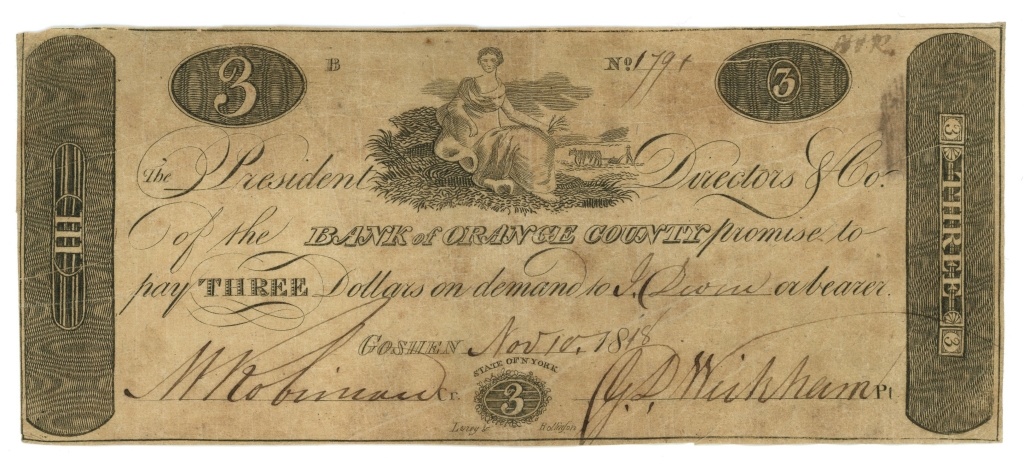 3 B No 1791 3
The President Directors & Co.
of the BANK of ORANGE COUNTY promise to
pay THREE Dollars on demand to or bearer.
GOSHEN Nov 10, 1818
STATE OF N YORK
M Robinson Cr. 3 J. D. Wickham Pt
III
3 THREE 3